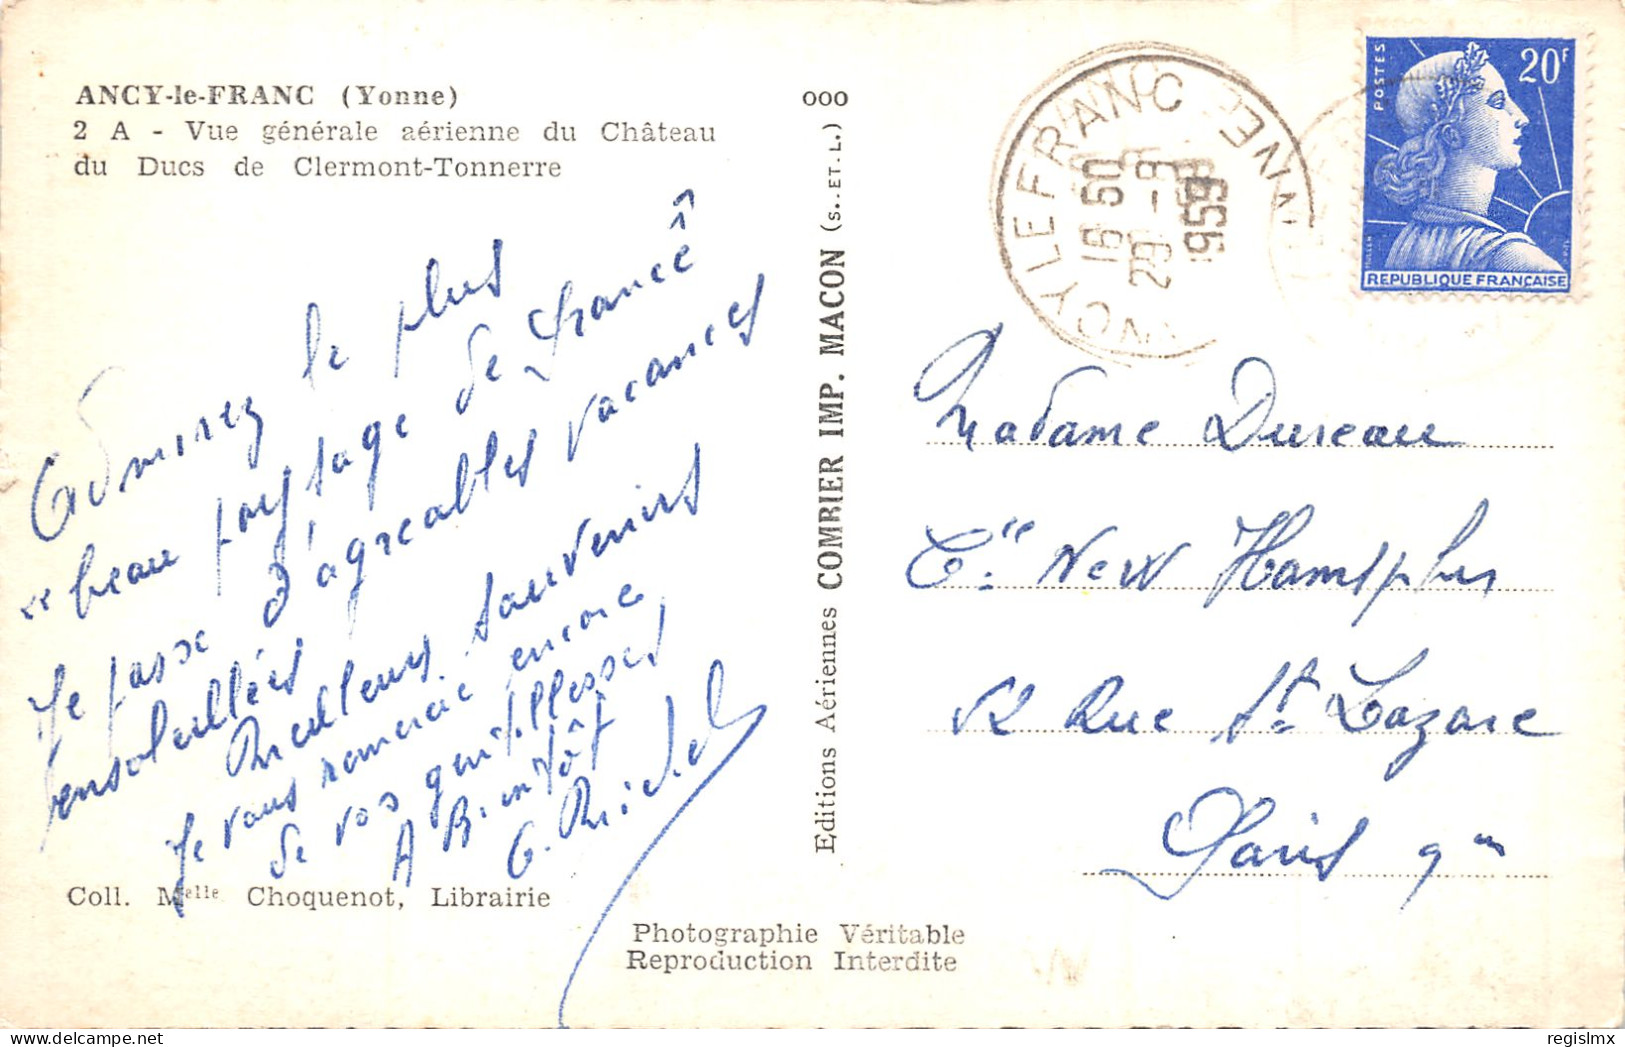 ANCY-le-FRANC (Yonne)
2 A - Vue générale aérienne du Château
du Ducs de Clermont-Tonnerre
Admirez le plus
"beau paysage de France"
Je passe d'agréables vacances
ensoleillées
Meilleurs souvenirs
Je vous remercie encore
de vos gentillesses
A Bientôt
G. Michel
Coll. Melle Choquenot, Librairie
Photographie Véritable
Reproduction Interdite
Editions Aériennes COMBIER IMP. MACON (S. ET L.)
000
ANCY LE FRANC YONNE
16 50
29 - 9
1959
POSTES
20F
REPUBLIQUE FRANÇAISE
Madame Dureau
Cie New Hampshir
Rue St Lazare
Paris 9em
regislmx
delcampe.net